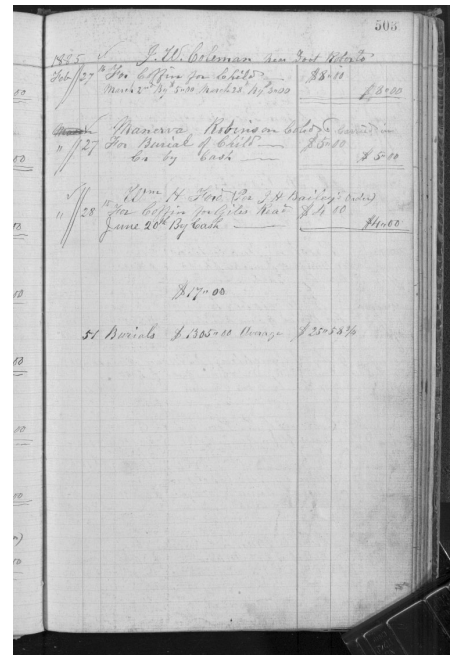 503
1885 J. W. Coleman near Fort
Feb 27 " For Coffin for Child $8-00
March 2nd By $5-00 March 28 By 3-00 $8-00
Manerva Robinson Cold
" 27 For Burial of Child $5-00
Cr by Cash $5-00
Wm H. (Per J H Bailey's order)
" 28 " For Coffin for Giles $4 00
June 20th By Cash $4-00
$17-00
51 Burials $1305-00 Average $25-58